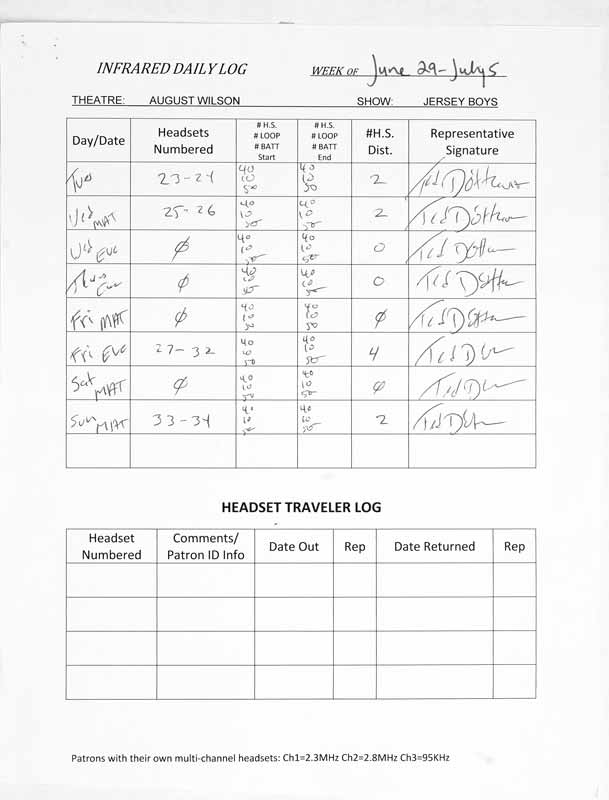 INFRARED DAILY LOG WEEK OF June 29-July 5
THEATRE: AUGUST WILSON SHOW: JERSEY BOYS
Day/Date Headsets Numbered # H.S. # LOOP # BATT Start # H.S. # LOOP # BATT End #H.S. Dist. Representative Signature
Tues 23-24 40 10 50 40 10 50 2
Wed MAT 25-26 40 10 50 40 10 50 2
Wed EVE ∅ 40 10 50 40 10 50 0
Thurs Eve ∅ 40 10 50 40 10 50 0
Fri MAT ∅ 40 10 50 40 10 50 ∅
Fri EVE 27-32 40 10 50 40 10 50 4
Sat MAT ∅ 40 10 50 40 10 50 ∅
Sun MAT 33-34 40 10 50 40 10 50 2
HEADSET TRAVELER LOG
Headset Numbered Comments/ Patron ID Info Date Out Rep Date Returned Rep
Patrons with their own multi-channel headsets: Ch1=2.3MHz Ch2=2.8MHz Ch3=95KHz